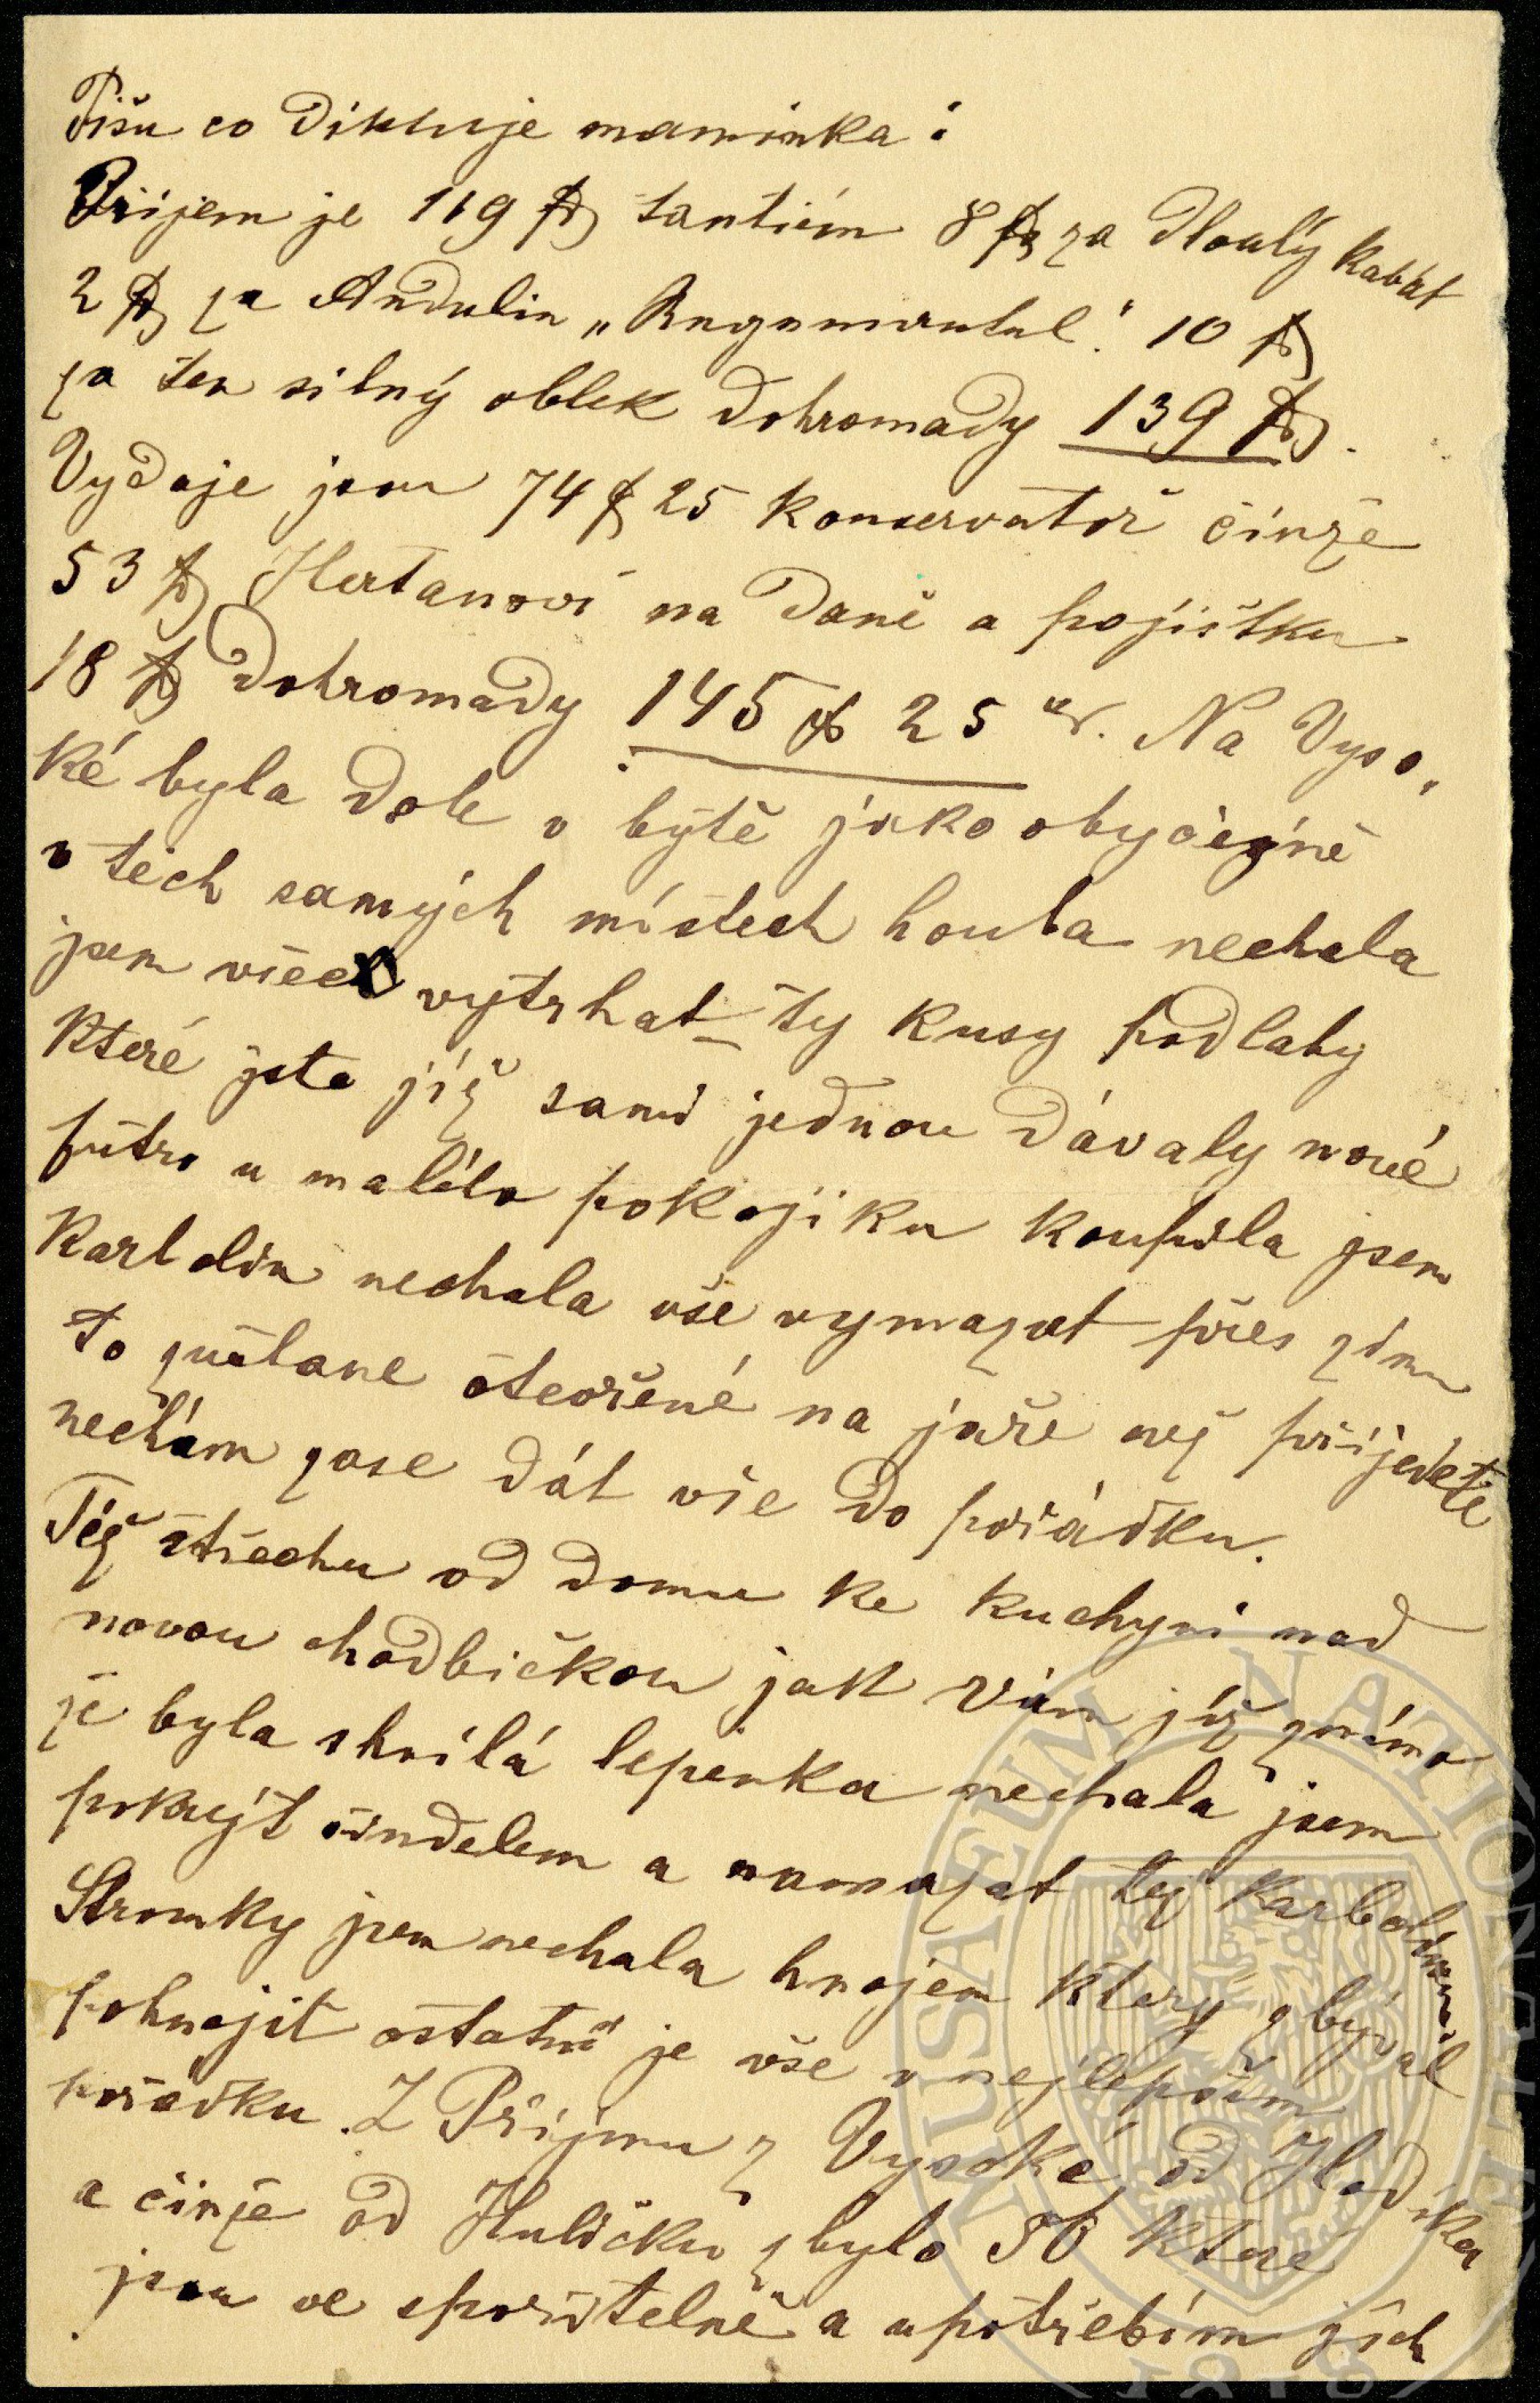 Píšu co diktuje maminka:
Příjem je 119 fl tantiém 8 fl za dlouhý kabát
2 fl za Andulin „ 10 fl
za ten silný oblek dohromady 139 fl.
Vydaje jsou 74 fl 25 konservatoř činže
53 fl Hertanovi na daně a pojištku
18 fl dohromady 145 fl 25 kr. Na Vyso„
ké byla dole v bytě jako obyčejně
v těch samých místech houba nechala
jsem všech vytrhat ty kusy podlahy
které jste již sami jednou dávaly nové
futro u malého pokojiku koupila jsem
karbolin nechala vše vymazat přes zimu
to zůstane otevřené na jaře než přijedete
nechám zase dát vše do pořádku.
Též střechu od domu ke kuchyni nad
novou chodbičkou jak Vám již známo
je byla shnilá lepenka nechala jsem
pokrýt šindelem a namazat též karbolinem
Stromky jsem nechala hnojem který zbýval
pohnojit ostatní je vše v nejlepším
pořadku. Z Příjmu z Vysoké od Hodíka
a činže od Huličku zbylo 50 které
jsou ve spořitelně a upotřebím jich
MUSAEUM NATIONALE
1818